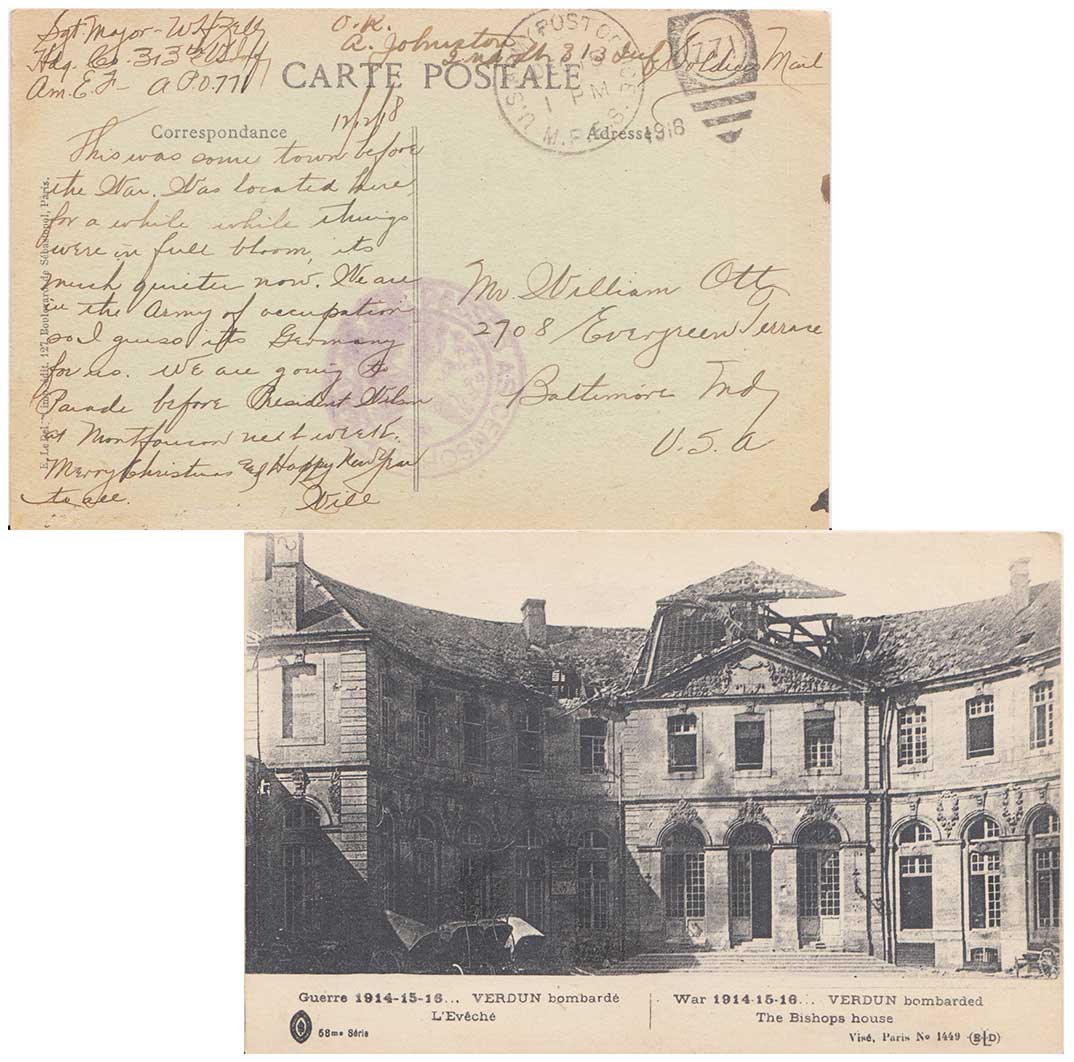 Sgt Major - W H Zell
Hdq. Co. 313th U.S. Inf
Am. E. F - A P.O. 771
O.K.
A. Johnston
2nd Lt. 313 Inf
Soldiers Mail
CARTE POSTALE
U.S. ARMY POST OFFICE
1 PM
M.P.E.S.
1918
771
Correspondance
Adresse
12/2/18
This was some town before
the War. Was located here
for a while while things
were in full bloom, its
much quieter now. We are
in the Army of occupation
so I guess its Germany
for us. We are going to
Parade before President Wilson
at Montfaucon next week.
Merry Christmas and Happy New Year
to all. Will
Mr. William Ott
2708 Evergreen Terrace
Baltimore Md
U.S.A
E. Le Deley, imp.-édit., 127, Boulevard de Sébastopol, Paris.
Guerre 1914-15-16... VERDUN bombardé
L'Evêché
58me Série
War 1914-15-16... VERDUN bombarded
The Bishops house
Visé, Paris No 1449 ELD